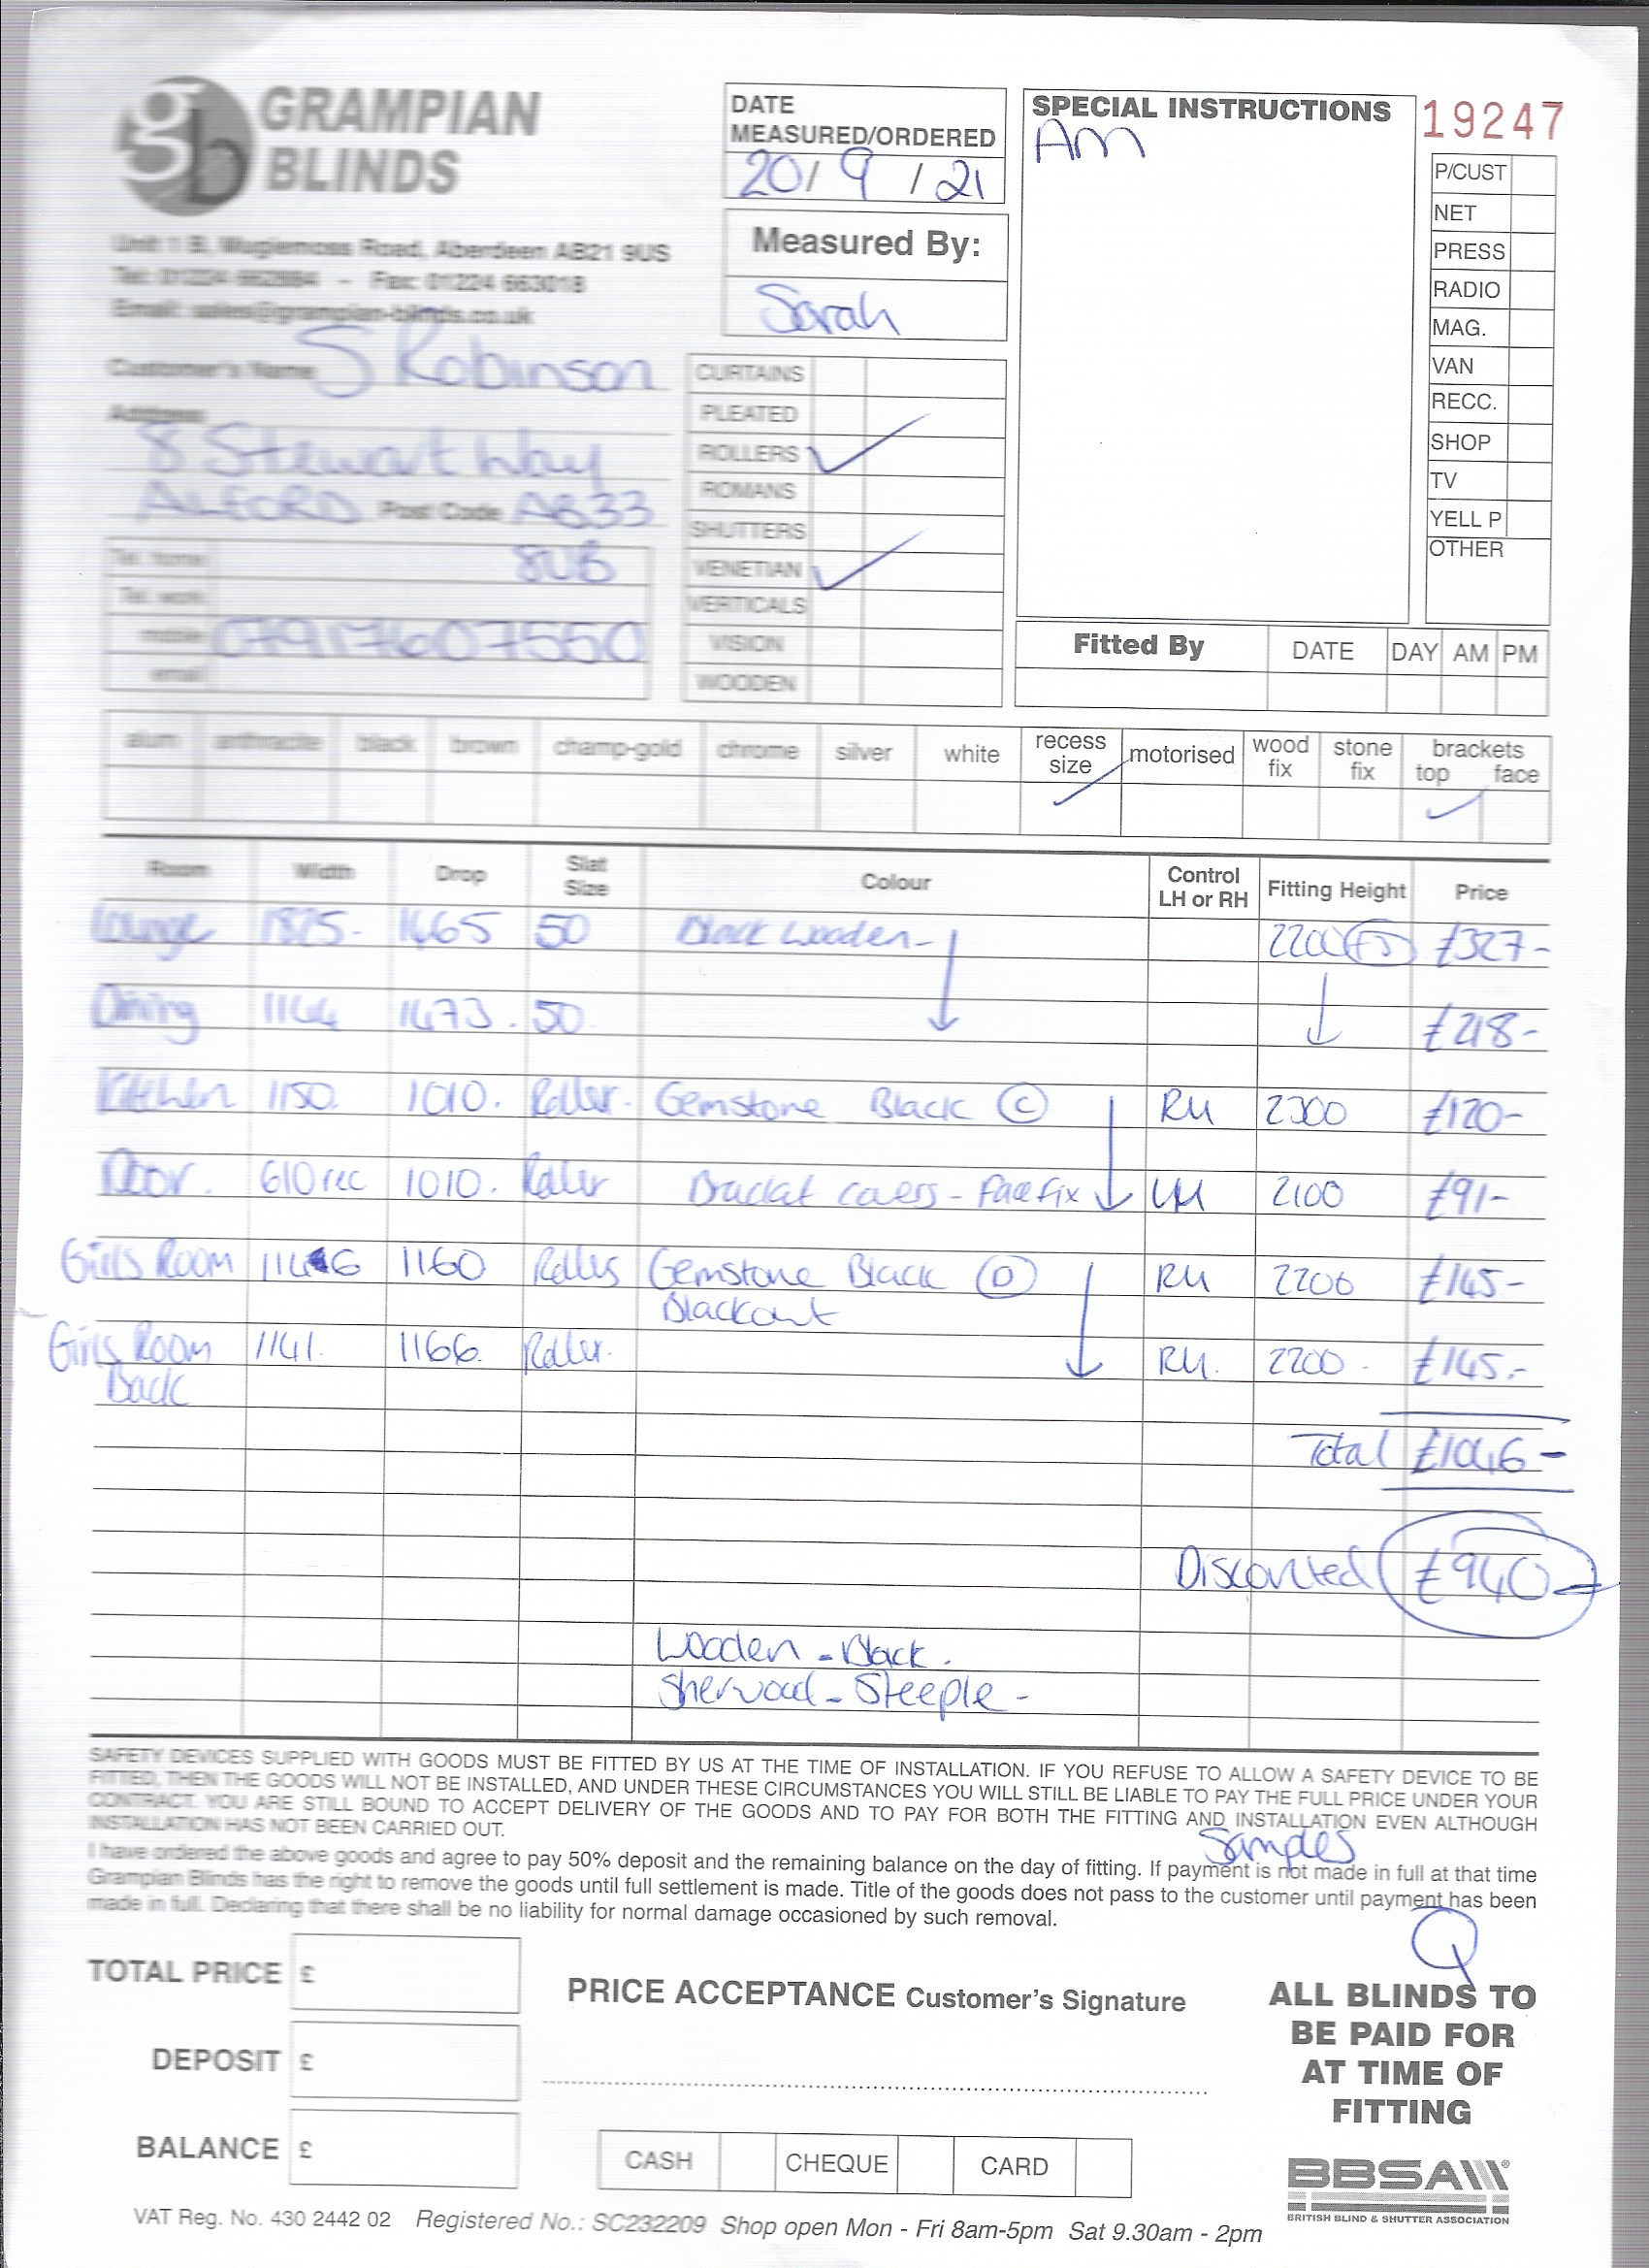 GRAMPIAN
BLINDS
Unit 1 B, Mugiemoss Road, Aberdeen AB21 9US
Tel: 01224 - Fax: 01224 663018
Email: sales@grampian-blinds.co.uk
DATE
MEASURED/ORDERED
20/ 9 / 21
Measured By:
Sarah
SPECIAL INSTRUCTIONS
AM
19247
P/CUST
NET
PRESS
RADIO
MAG.
VAN
RECC.
SHOP
TV
YELL P
OTHER
Customer's Name S Robinson
Address
8 Stewart Way
ALFORD Post Code AB33
8UB
Tel. home
Tel. work
mobile 07917607550
email
CURTAINS
PLEATED
ROLLERS ✓
ROMANS
SHUTTERS
VENETIAN ✓
VERTICALS
VISION
WOODEN
Fitted By DATE DAY AM PM
alum anthracite black brown champ-gold chrome silver white recess size motorised wood fix stone fix brackets top face
Room Width Drop Slat Size Colour Control LH or RH Fitting Height Price
Lounge 1825- 1465 50 Black Wooden- 2200 £327-
Dining 1144 1473. 50 £218-
Kitchen 1150. 1010. Roller. Gemstone Black C RH 2300 £120-
Door. 610 rec 1010. Roller Bracket covers - Face fix LH 2100 £91-
Girls Room 1146 1160 Roller Gemstone Black D RH 2200 £145-
Blackout
Girls Room 1141. 1166. Roller. RH. 2200 - £145.-
Back
Total £1046-
Discounted £940-
Wooden - Black.
Sherwood - Steeple -
SAFETY DEVICES SUPPLIED WITH GOODS MUST BE FITTED BY US AT THE TIME OF INSTALLATION. IF YOU REFUSE TO ALLOW A SAFETY DEVICE TO BE
FITTED, THEN THE GOODS WILL NOT BE INSTALLED, AND UNDER THESE CIRCUMSTANCES YOU WILL STILL BE LIABLE TO PAY THE FULL PRICE UNDER YOUR
CONTRACT. YOU ARE STILL BOUND TO ACCEPT DELIVERY OF THE GOODS AND TO PAY FOR BOTH THE FITTING AND INSTALLATION EVEN ALTHOUGH
INSTALLATION HAS NOT BEEN CARRIED OUT.
Samples
I have ordered the above goods and agree to pay 50% deposit and the remaining balance on the day of fitting. If payment is not made in full at that time
Grampian Blinds has the right to remove the goods until full settlement is made. Title of the goods does not pass to the customer until payment has been
made in full. Declaring that there shall be no liability for normal damage occasioned by such removal.
Q
TOTAL PRICE £
DEPOSIT £
BALANCE £
PRICE ACCEPTANCE Customer's Signature
CASH CHEQUE CARD
ALL BLINDS TO
BE PAID FOR
AT TIME OF
FITTING
BBSA
BRITISH BLIND & SHUTTER ASSOCIATION
VAT Reg. No. 430 2442 02 Registered No.: SC232209 Shop open Mon - Fri 8am-5pm Sat 9.30am - 2pm